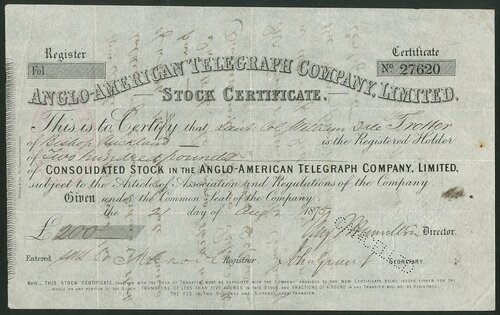 Register
Certificate
Fol
No 27620
ANGLO-AMERICAN TELEGRAPH COMPANY, LIMITED.
STOCK CERTIFICATE.
This is to Certify that Lieut Col William Dale Trotter
of Bishop Auckland is the Registered Holder
of Two hundred pounds
of CONSOLIDATED STOCK IN THE ANGLO-AMERICAN TELEGRAPH COMPANY, LIMITED,
subject to the Articles of Association and Regulations of the Company.
Given under the Common Seal of the Company,
the 21 day of 187
£200 Hamilton Director.
Entered Registrar SECRETARY.
NOTE. THIS STOCK CERTIFICATE, TOGETHER WITH THE DEED OF TRANSFER, MUST BE DEPOSITED WITH THE COMPANY PREVIOUS TO ANY NEW CERTIFICATE BEING ISSUED EITHER FOR THE
WHOLE OR ANY PORTION OF THE STOCK. TRANSFERS OF LESS THAN FIVE POUNDS IN THIS STOCK AND FRACTIONS OF A POUND IN ANY TRANSFER WILL NOT BE REGISTERED.
THE FEE IS TWO SHILLINGS AND SIXPENCE EACH TRANSFER.